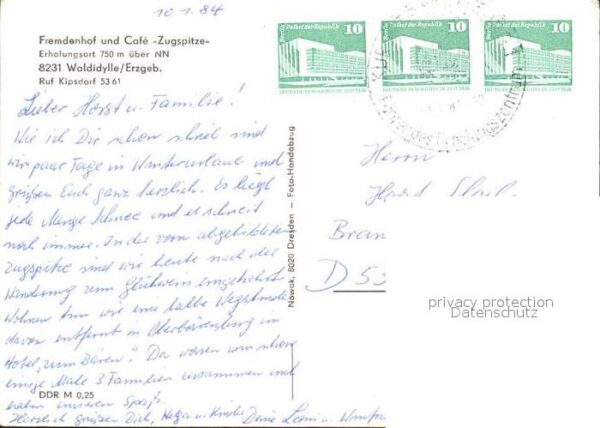 10.1.84
Fremdenhof und Café -Zugspitze-
Erhalungsort 750 m über NN
8231 Waldidylle/Erzgeb.
Ruf Kipsdorf 5361
Lieber Horst u. Familie!
Wie ich Dir schon schrieb sind
wir paar Tage in Winterurlaub und
grüßen Euch ganz herzlich. Es liegt
jede Menge Schnee und es schneit
noch immer. In der vorn abgebildeten
Zugspitze sind wir heute nach der
Wanderung zum Glühwein eingekehrt
Wohnen tun wir eine halbe Wegstunde
davon entfernt in Oberbärenburg im
Hotel „zum Bären". Da waren wir schon
einige Male 3 Familien zusammen und
haben unseren Spaß.
Herzlich grüßen Dich, Helga u. Kinder Deine
DDR M 0,25
Nowak, 8020 Dresden - Foto-Handabzug
Berlin Palast der Republik 10
DEUTSCHE DEMOKRATISCHE REPUBLIK
Berlin Palast der Republik 10
DEUTSCHE DEMOKRATISCHE REPUBLIK
Berlin Palast der Republik 10
DEUTSCHE DEMOKRATISCHE REPUBLIK
Herrn
Horst
Bran
D 53
privacy protection
Datenschutz